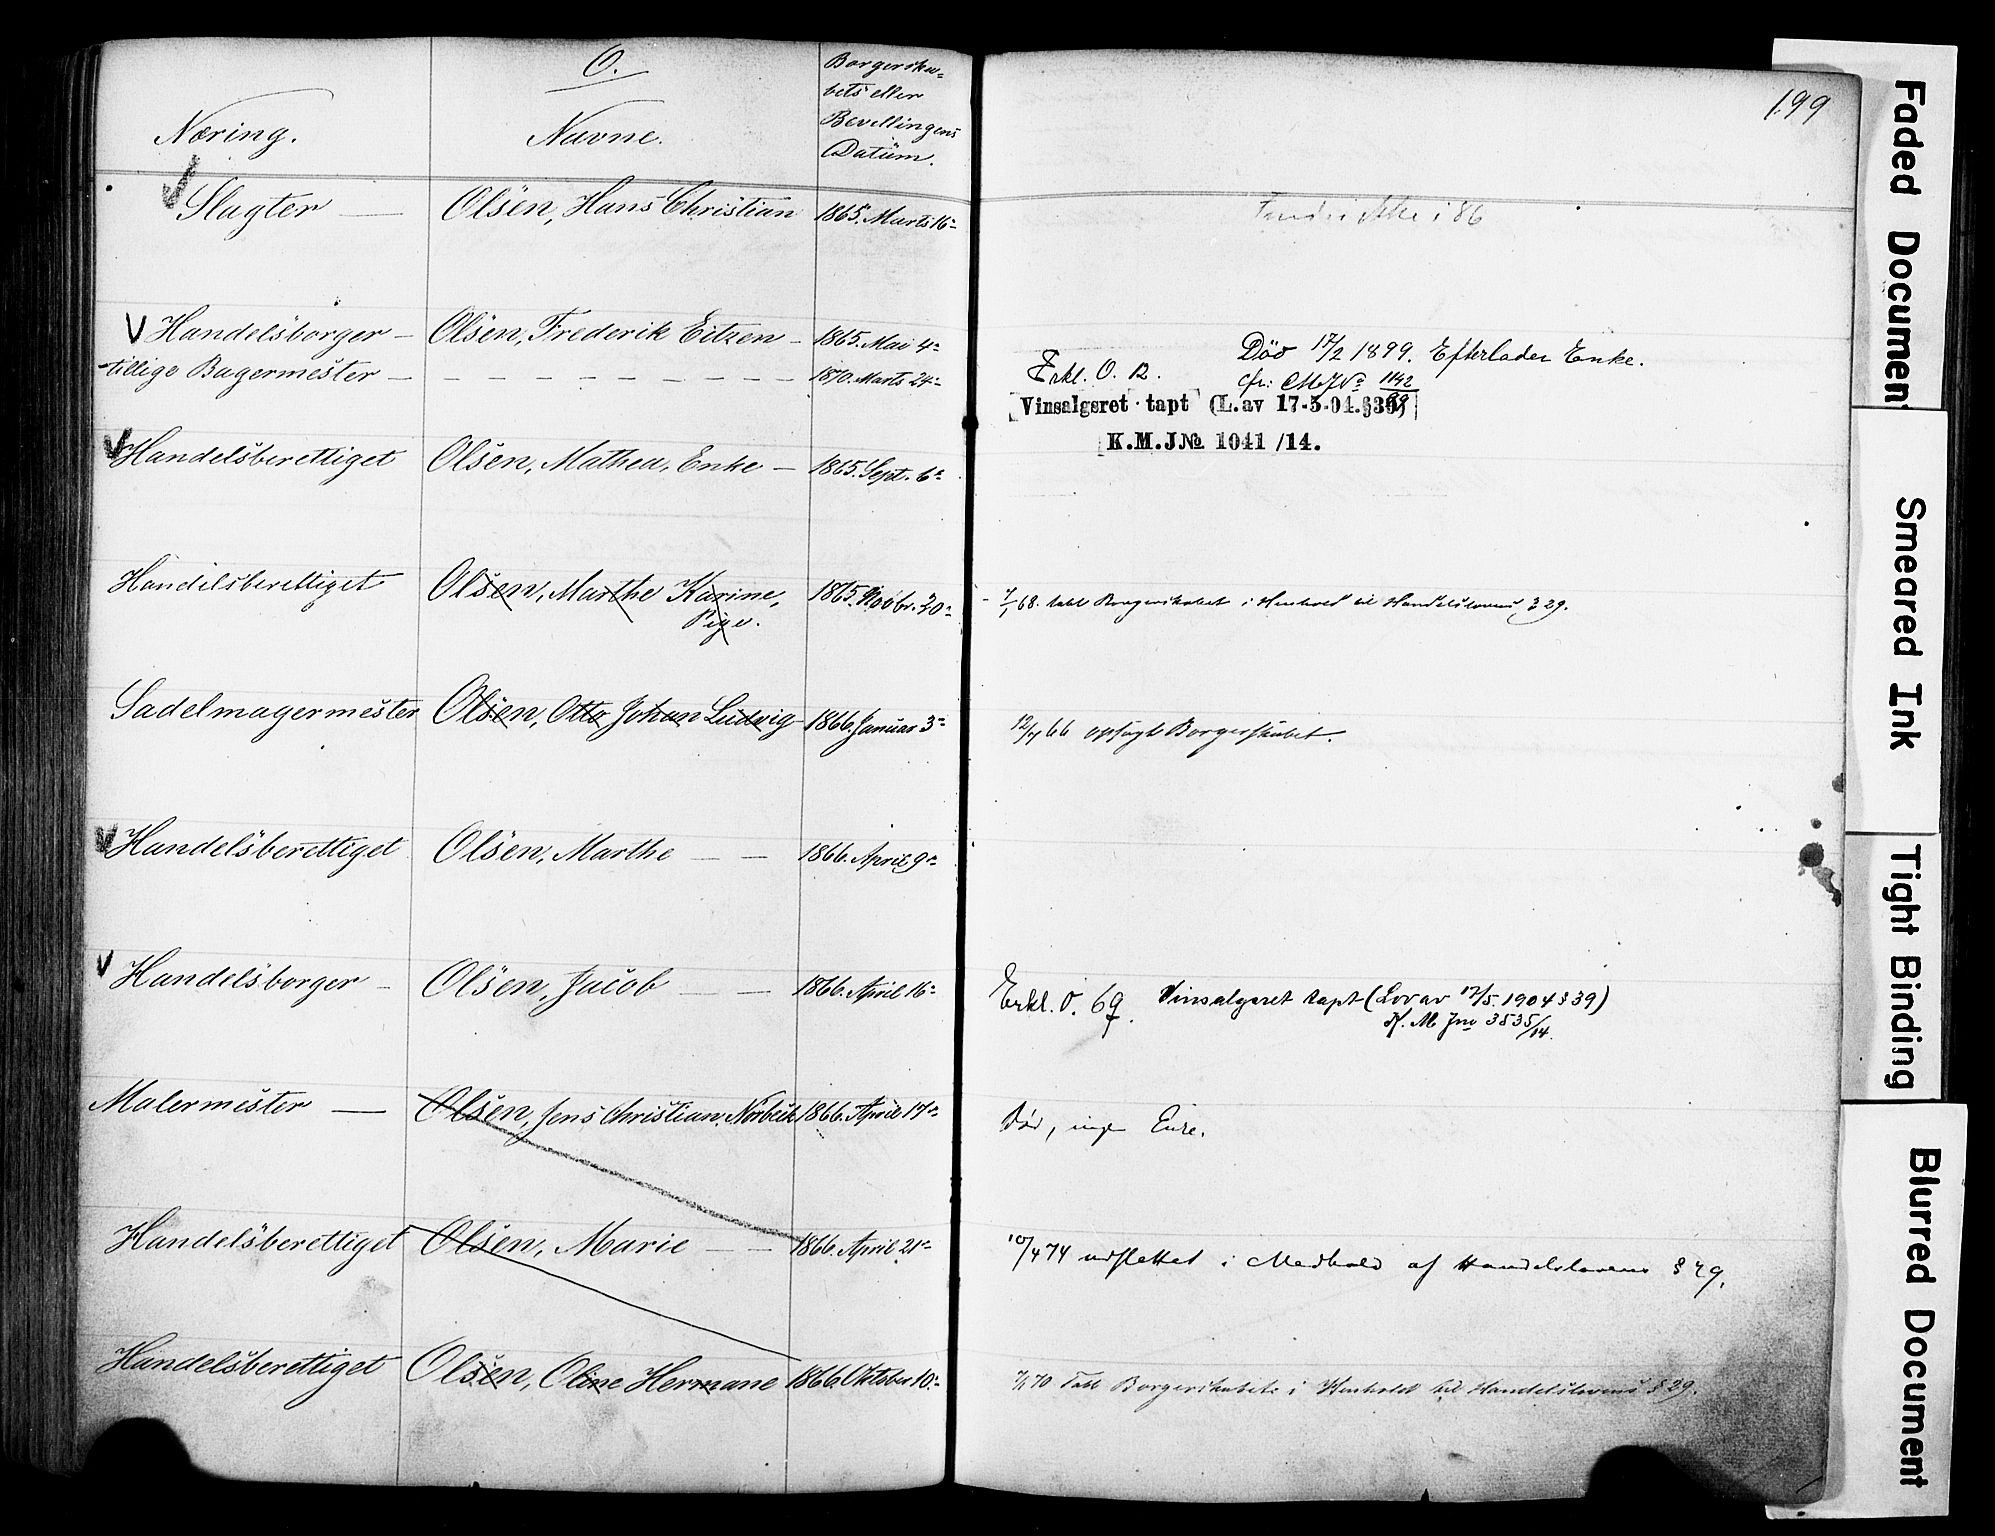 O.
Næring.
Navne.
Borgerska-
bets eller
Bevillingens
Datum.
199
Slagter — Olsen, Hans Christian 1865. Marts 16-
i 86
V Handelsborger — Olsen, Frederik Eitzen — 1865. Mai 4-
tillige Bagermester — — — — — — — — — 1870. Marts 24-
Død 17/2 1899. Efterlader Enke.
Erkl. O. 12. cfr: CMJNo 1142/99
Vinsalgsret tapt (L. av 17-5-04. §39)
K.M.J№ 1041/14.
V Handelsberettiget Olsen, Mathea, Enke — 1865. Sept. 6-
Handelsberettiget Olsen, Marthe Karine, 1865. Novbr. 30-
Pige.
7/1 68. tabt Borgerskabet i Henhold til Handelslovens § 29.
Sadelmagermester Olsen, Otto Johan Ludvig 1866. Januar 3-
66 opsagt Borgerskabet.
V Handelsberettiget Olsen, Marthe — — 1866. April 9-
V Handelsborger — Olsen, Jacob — — 1866. April 16-
Erkl. O. 69. Vinsalgsret tapt (Lov av 17/5. 1904 § 39)
K. M Jno 3535/14.
Malermester — Olsen, Jens Christian Norbeck 1866. April 17-
Død, ingen Enke.
Handelsberettiget Olsen, Marie — — 1866. April 21-
10/4 74 udslettet i Medhold af Handelslovens § 29.
Handelsberettiget Olsen, Oline Hermane 1866. Oktober 10-
70 Tabt Borgerskabet i Henhold til Handelslovens § 29.
Faded Document
Smeared Ink
Tight Binding
Blurred Document